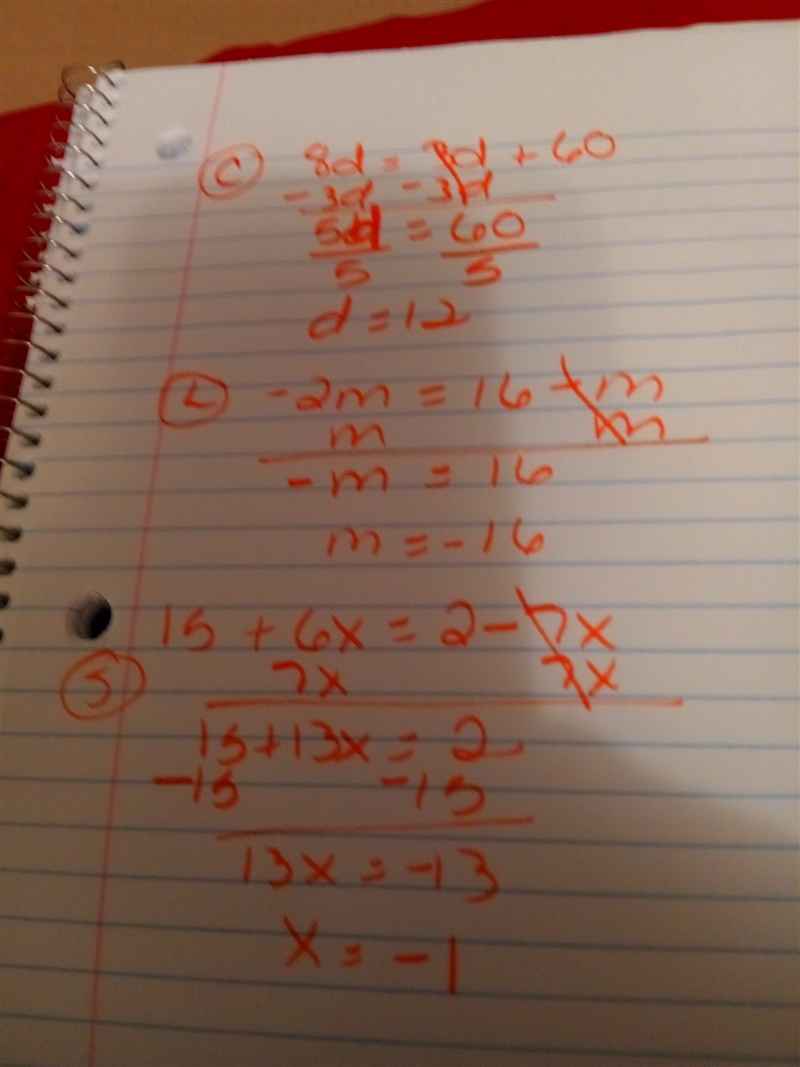 C 8d = 3d + 60
-3d -3d
5d = 60
5 5
d = 12
L -2m = 16 - m
m m
-m = 16
m = -16
15 + 6x = 2 - 7x
S 7x 7x
15 + 13x = 2
-15 -15
13x = -13
x = -1